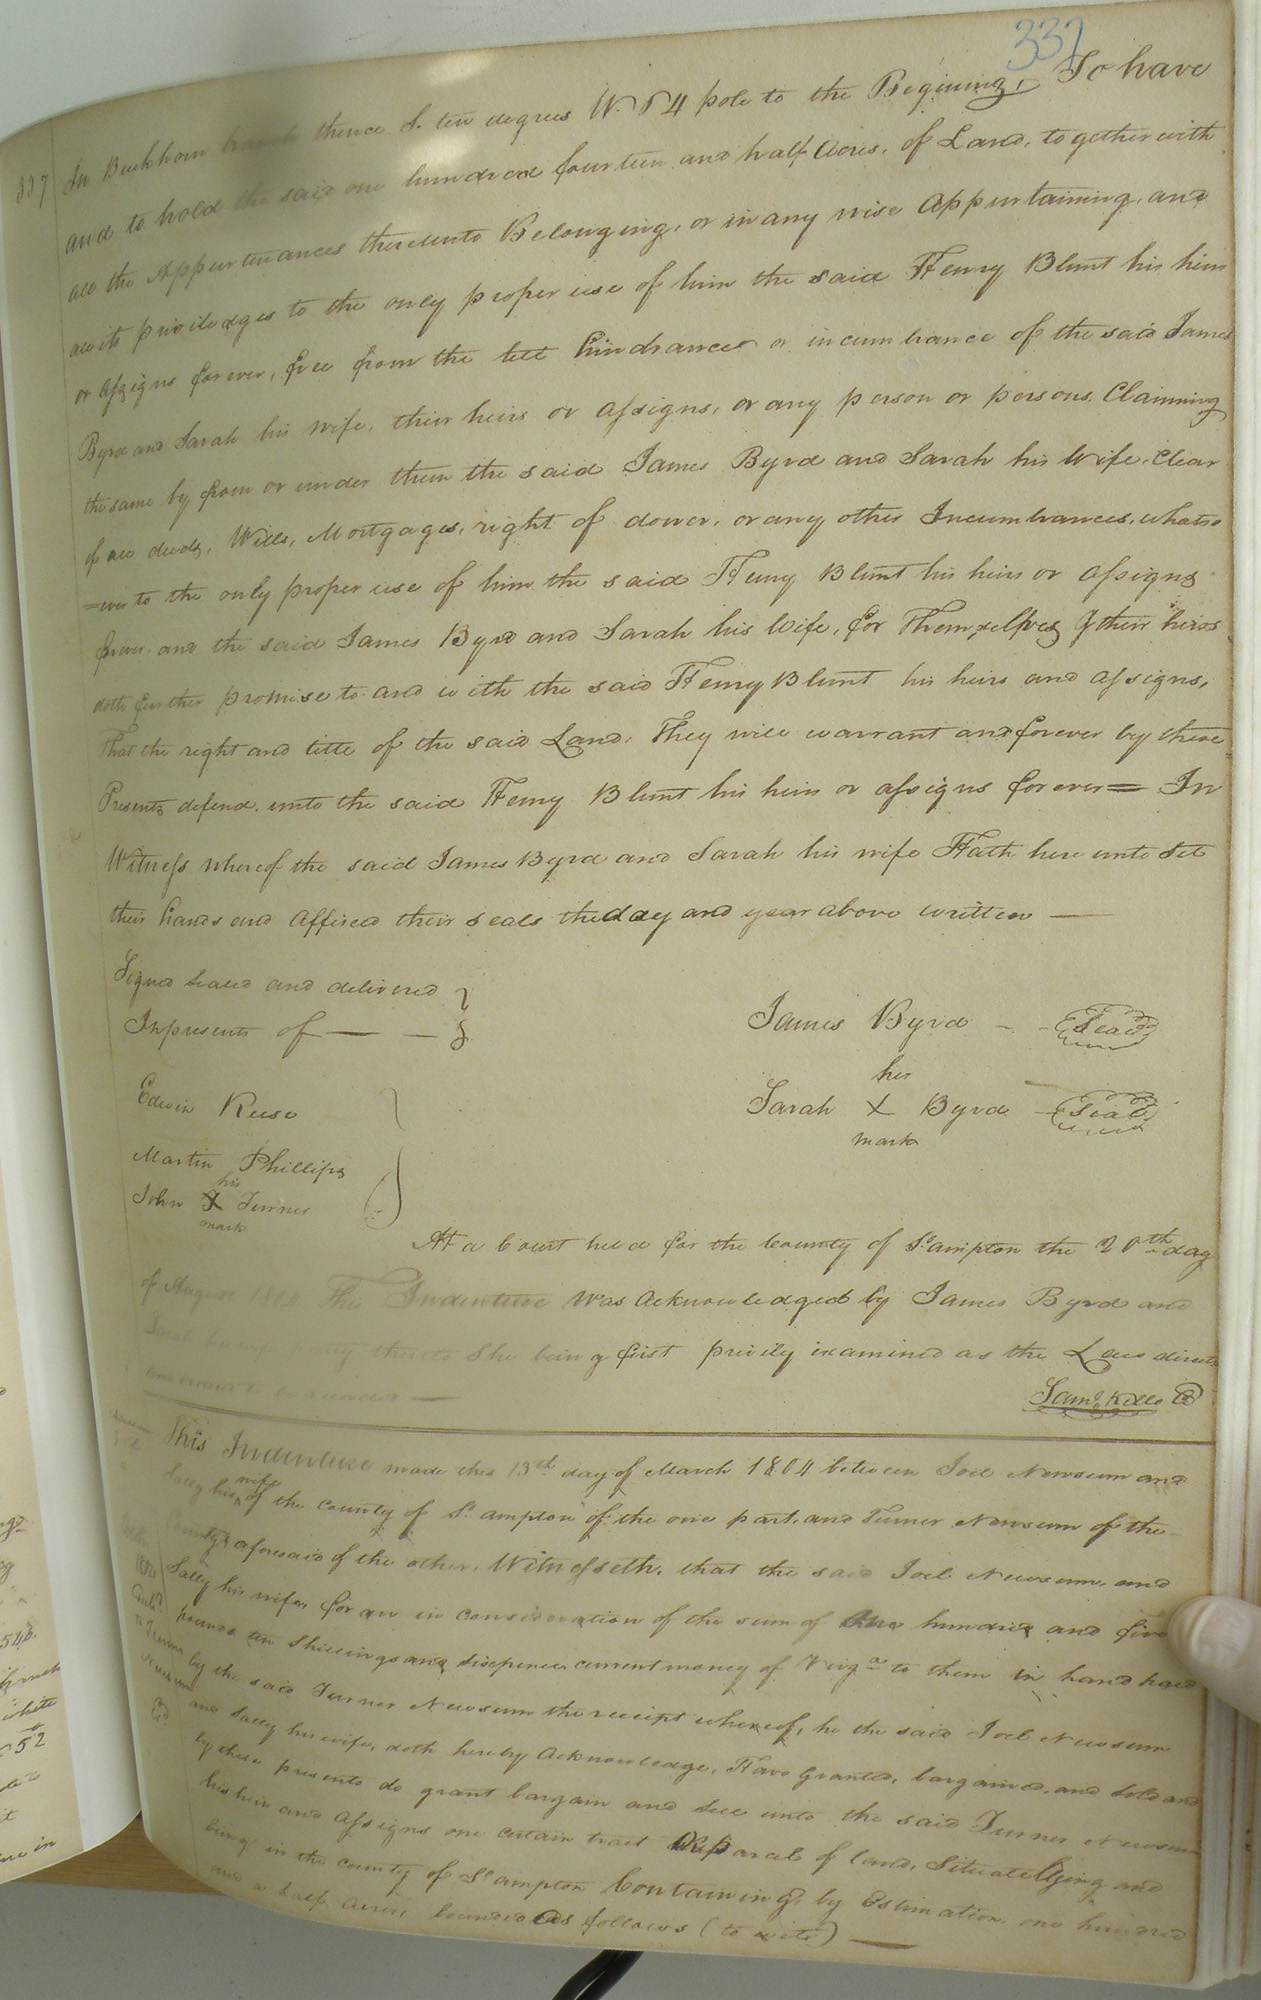 332
337
In Buckhorn branch thence S. ten degrees W. 54 pole to the Begining, To have
and to hold the said one hundred fourteen and half Acres, of Land, together with
all the Appurtenances thereunto Belonging, or in any wise Appurtaining, and
all its priviledges to the only proper use of him the said Henry Blunt his heirs
or Assigns forever, free from the lett hindrances or incumbrance of the said James
Byrd and Sarah his wife, their heirs or Assigns, or any person or persons Claiming
the same by from or under them the said James Byrd and Sarah his Wife, Clear
of all deeds, Wills, Mortgages, right of dower, or any other Incumbrances, whatso
=ever to the only proper use of him the said Henry Blunt his heirs or Assigns
forever and the said James Byrd and Sarah his Wife, for Themselves & their heirs
doth further promise to and with the said Henry Blunt his heirs and assigns,
That the right and title of the said Land, They will warrant and forever by these
Presents defend unto the said Henry Blunt his heirs or assigns forever = In
Witness whereof the said James Byrd and Sarah his wife Hath hereunto Set
their hands and Affixed their seals the day and year above written —
Signed Sealed and delivered
In presents of — —
James Byrd - - Seal
her
Sarah X Byrd - Seal
mark
Edwin Reese
Martin Phillips
his
John X Turner
mark
At a Court held for the County of S.ampton the 20th day
of August 1804 This Indenture Was Acknowledged by James Byrd and
thereto She being first privily examined as the Law directs
and ordered to be recorded —
Saml. Kello C
This Indenture made this 13th day of March 1804 between Joel Newsum and
Sally his wife of the County of St ampton of the one part, and Turner Newsum of the
County aforesaid of the other, Witnesseth, that the said Joel Newsum, and
Sally his wife, for an in consideration of the sum of One hundred and five
pounds ten Shillings and sixpence current money of Virga. to them in hand paid
by the said Turner Newsum the receipt whereof, he the said Joel Newsum
and Sally his wife, doth hereby Acknowledge, Have Granted, bargained, and sold and
by these presents do grant bargain and sell unto the said Turner Newsum
his heirs and Assigns one certain tract Or parcel of land, Situate lying and
being in the County of St ampton Containing, by Estimation, one hundred
and a half Acres, bounded as follows (to wit) —